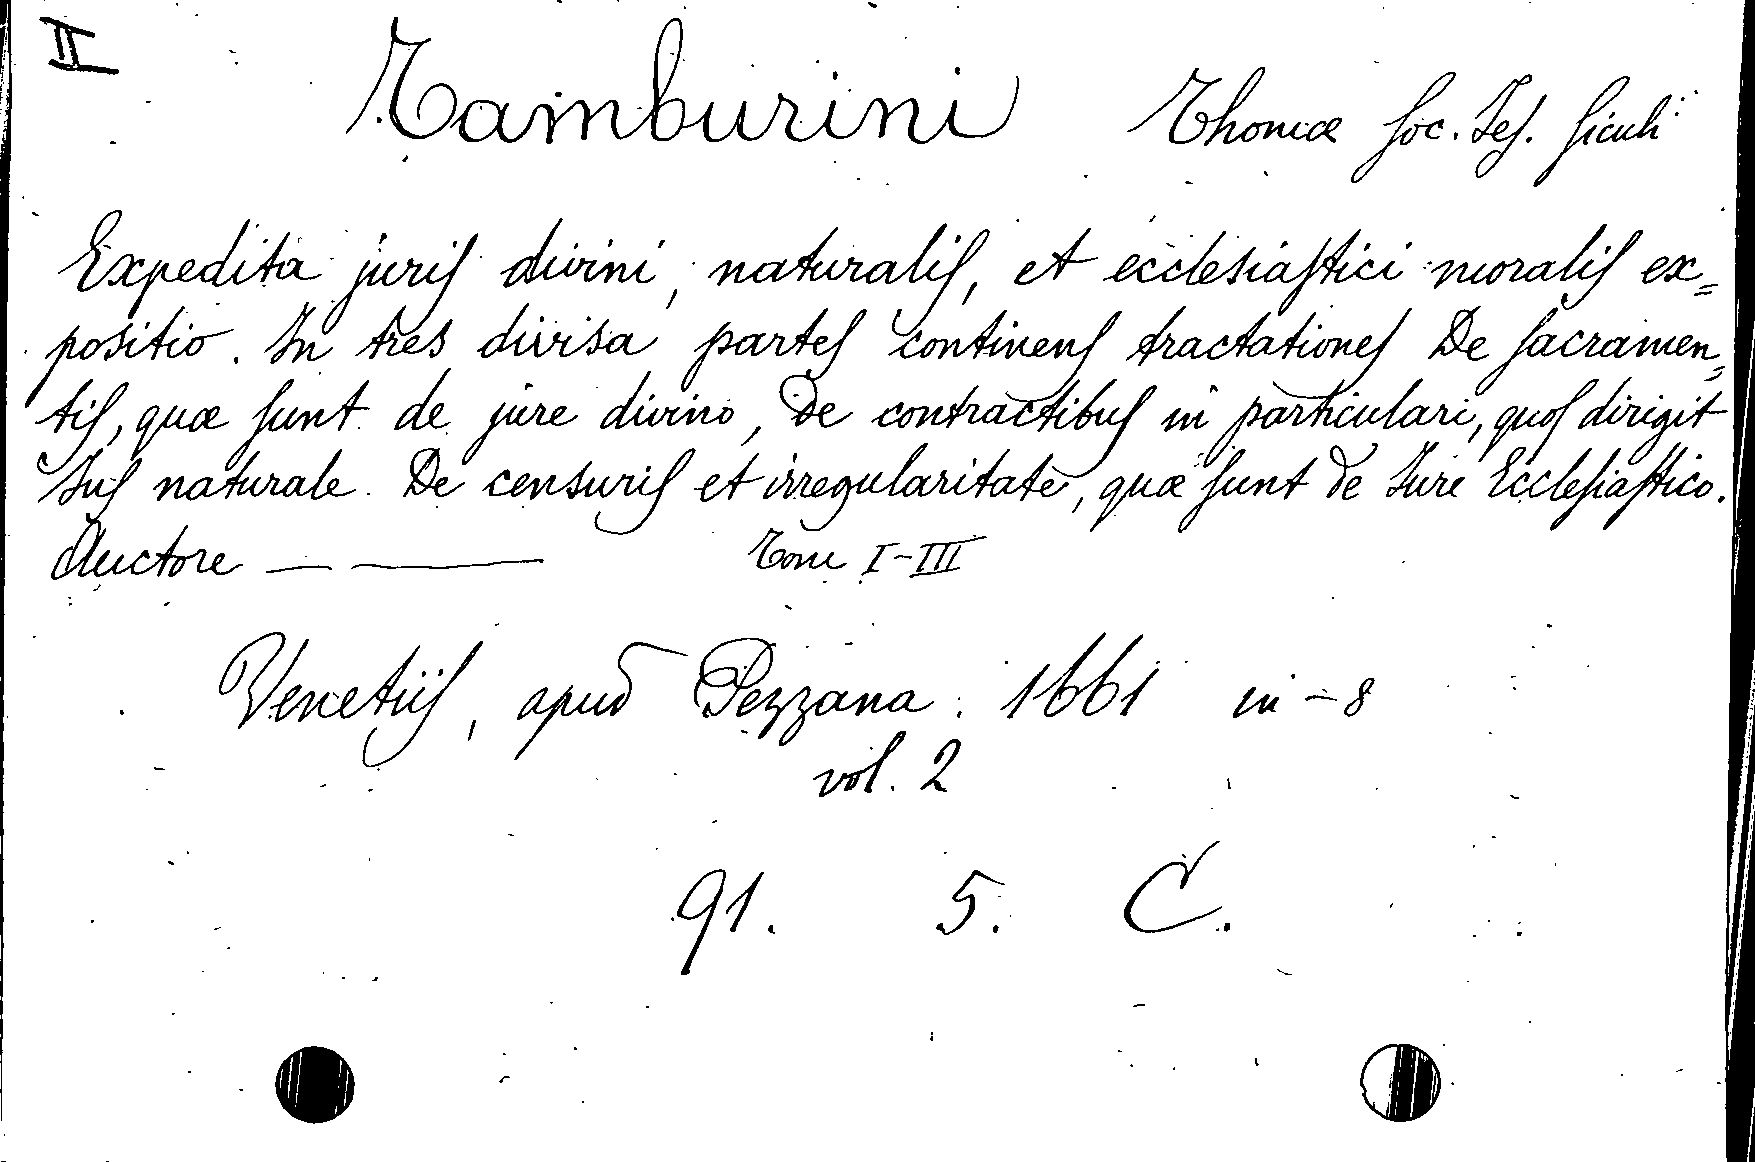 II
Tamburini Thomæ Soc. Jeſ. Siculi
Expedita juriſ divini, naturaliſ, et ecclesiaſtici moraliſ ex=
positio. In tres divisa parteſ continenſ tractationeſ De ſacramen=
tiſ, quæ ſunt de jure divino, De contractibuſ in particulari, quoſ dirigit
Juſ naturale. De censuriſ et irregularitate, quæ ſunt de Jure Eccleſiaſtico.
Auctore — —— Tom I-III
Venetiiſ, apud Pezzana. 1661 in-8
vol. 2
91. 5. C.